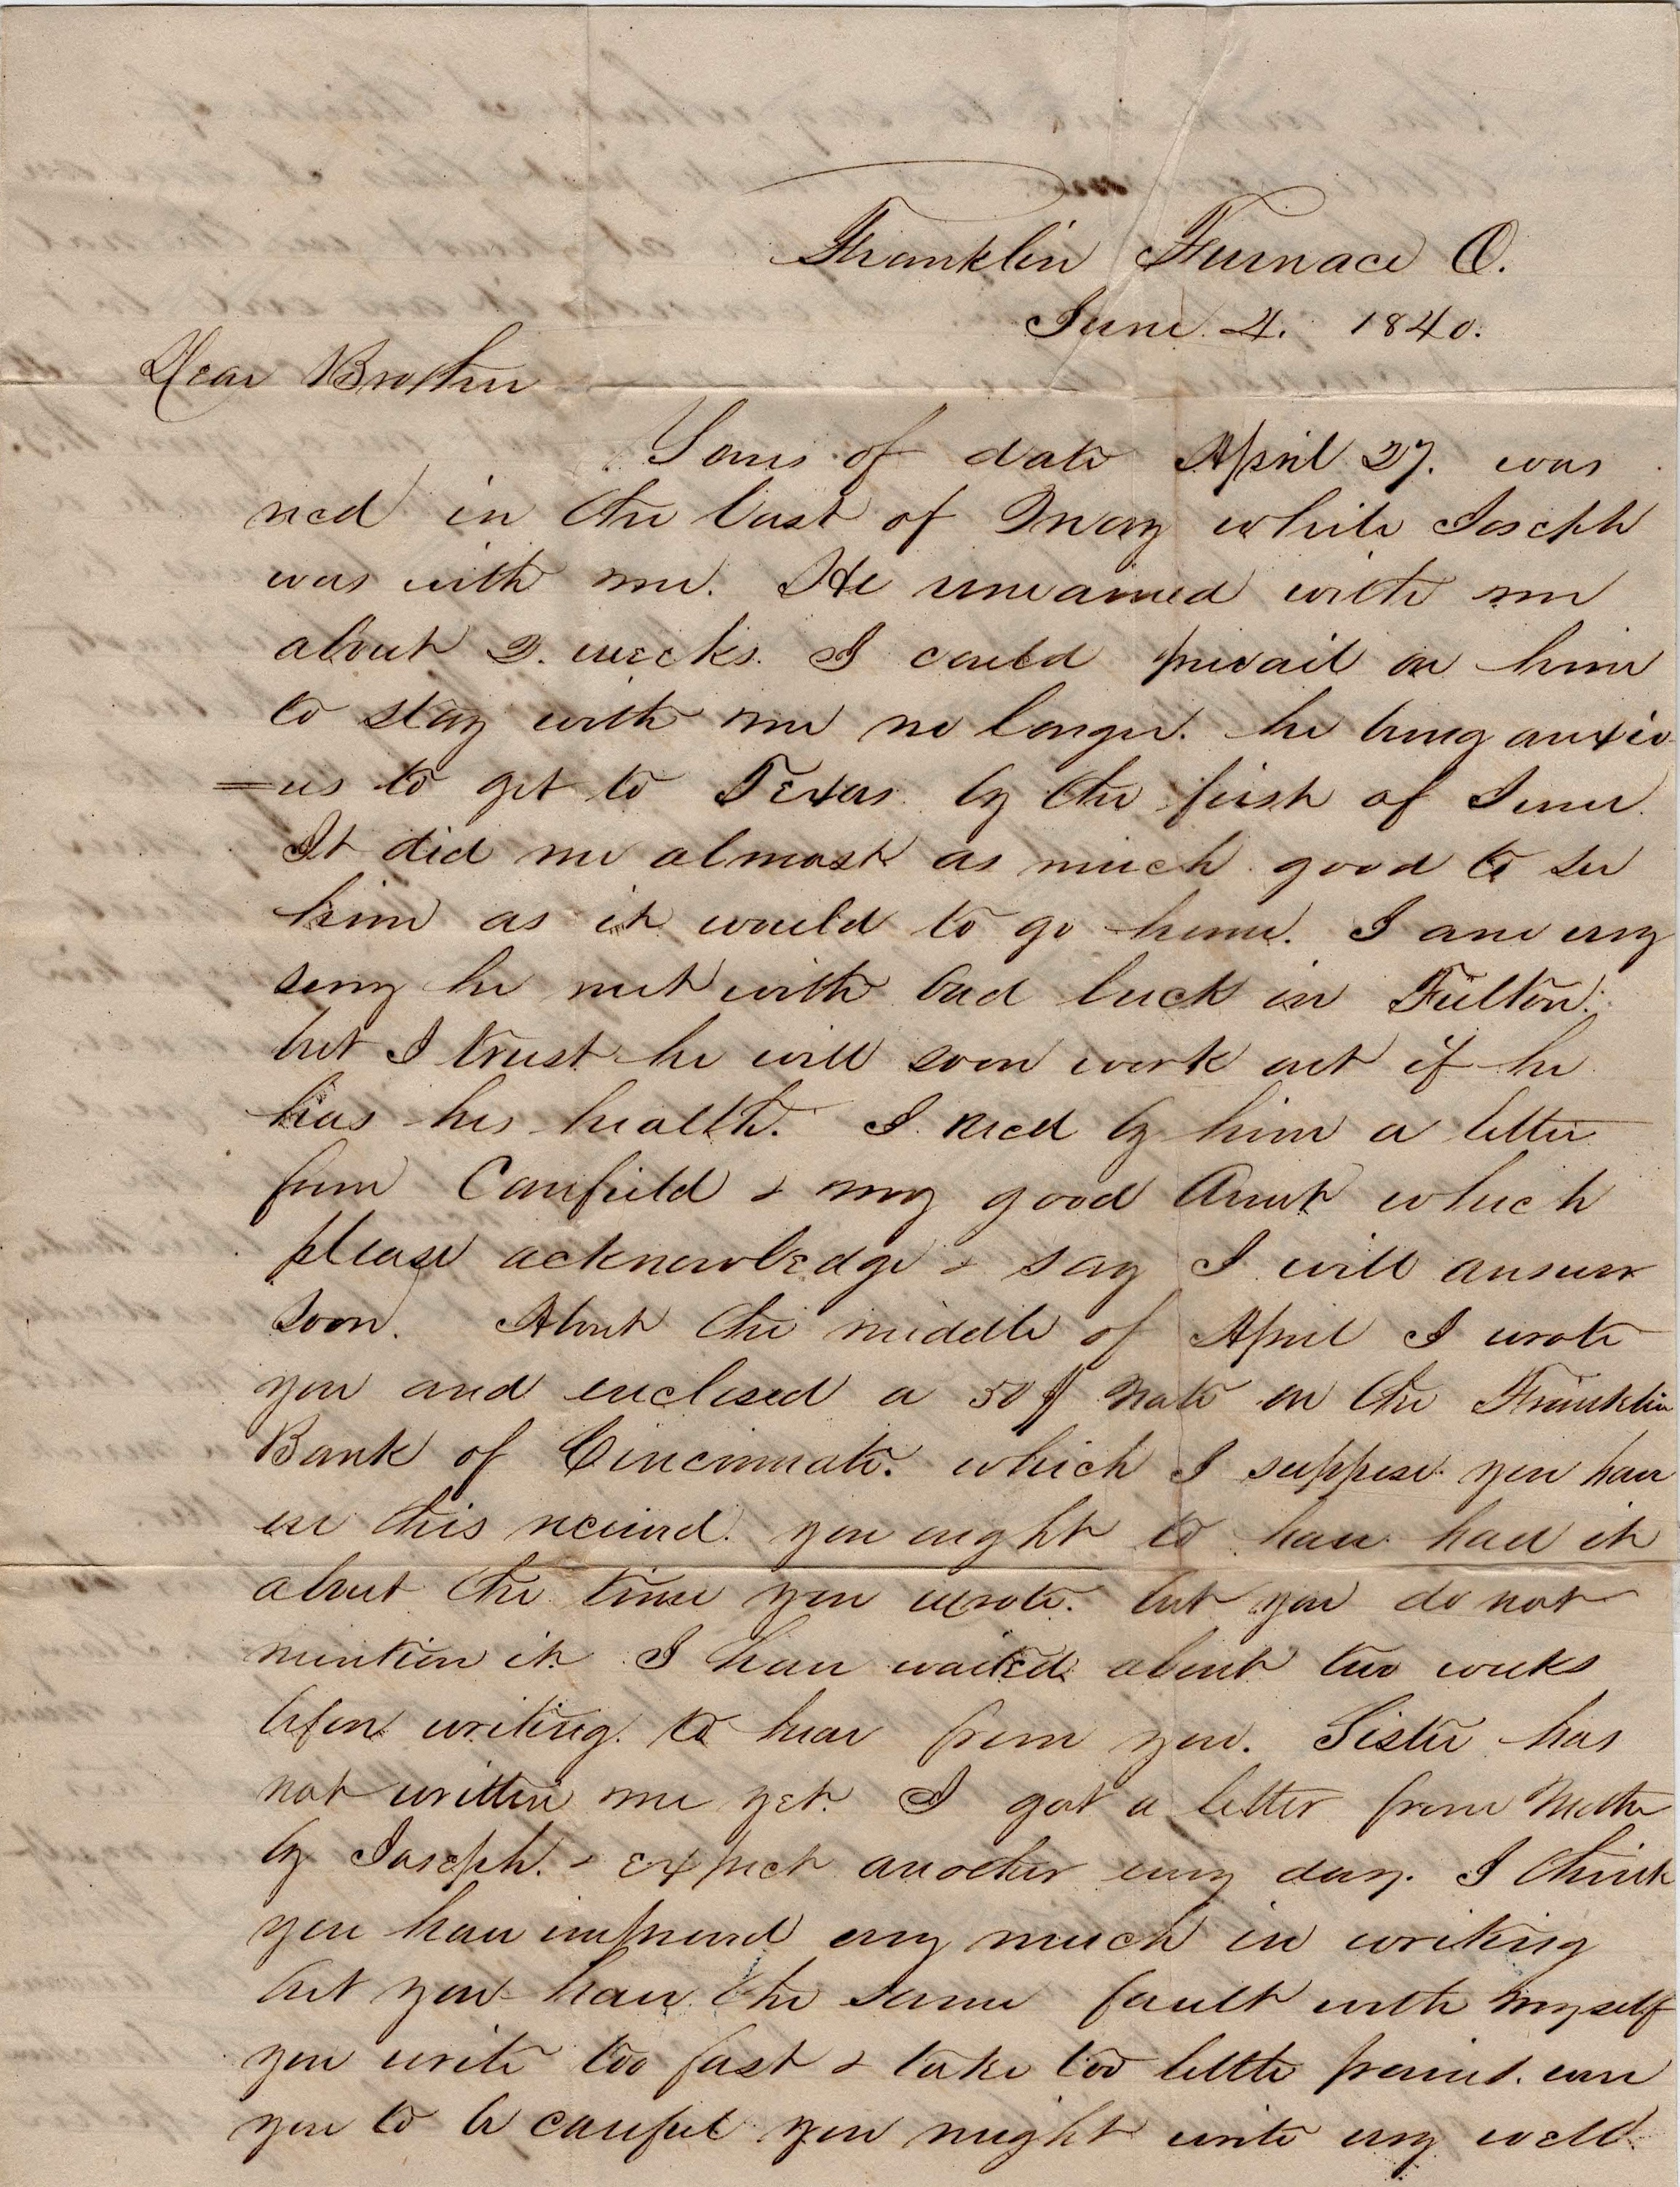 Franklin Furnace O.
June 4. 1840.
Dear Brother
Yours of date April 27. was
recd in the last of May while Joseph
was with me. He remained with me
about 2. weeks. I could prevail on him
to stay with me no longer. he being anxio
=us to get to Texas by the first of June.
It did me almost as much good to see
him as it would to go home. I am very
sorry he met with bad luck in Fulton.
but I trust he will soon work out if he
has his health. I recd by him a letter
from Canfield & my good Aunt which
please acknowledge & say I will answer
soon. About the middle of April I wrote
you and enclosed a 50$ Note on the Franklin
Bank of Cincinnati. which I suppose you have
ere this received. you ought to have had it
about the time you wrote. but you do not
mention it. I have waited about two weeks
before writing. to hear from you. Sister has
not written me yet. I got a letter from Mother
by Joseph. & expect another every day. I think
you have improved very much in writing
but you have the same fault with myself
you write too fast & take too little pains. were
you to be careful you might write very well.